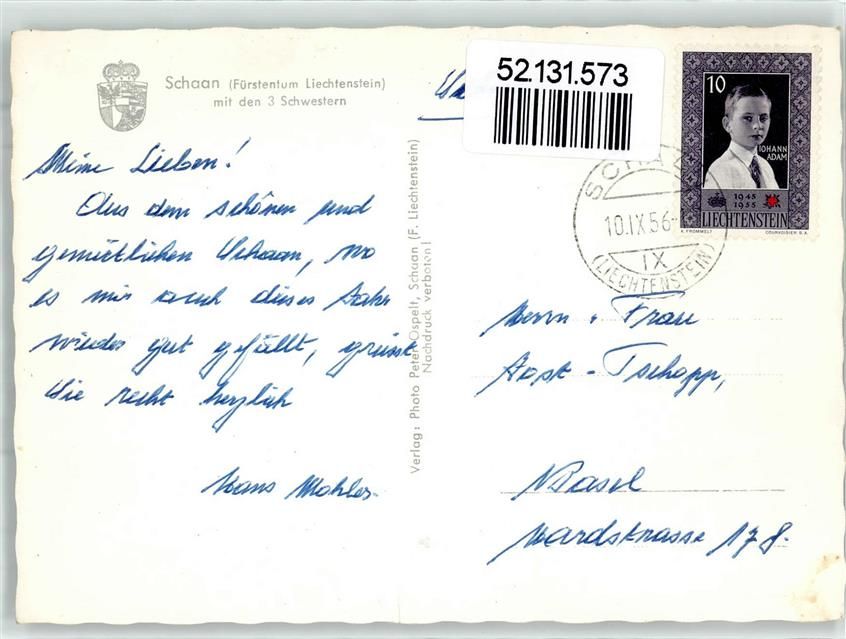 Schaan (Fürstentum Liechtenstein)
mit den 3 Schwestern
Meine Lieben!
Aus dem schönen und
gemütlichen Schaan, wo
es mir auch dieses Jahr
wieder gut gefällt, grüsst
Sie recht herzlich
Hans Mohler
Verlag: Photo Peter Ospelt, Schaan (F. Liechtenstein)
Nachdruck verboten!
52.131.573
10
IOHANN
ADAM
1945
1955
LIECHTENSTEIN
A. FROMMELT
COURVOISIER S.A.
10.IX.56-
IX
(LIECHTENSTEIN)
Herrn u Frau
Tschopp,
Basel
178.